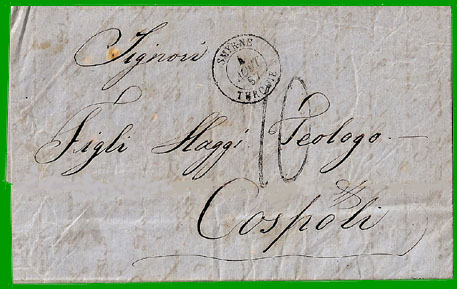 Signori
SMYRNE
TURQUIE
10
Figli Haggi Teologo
Cospoli